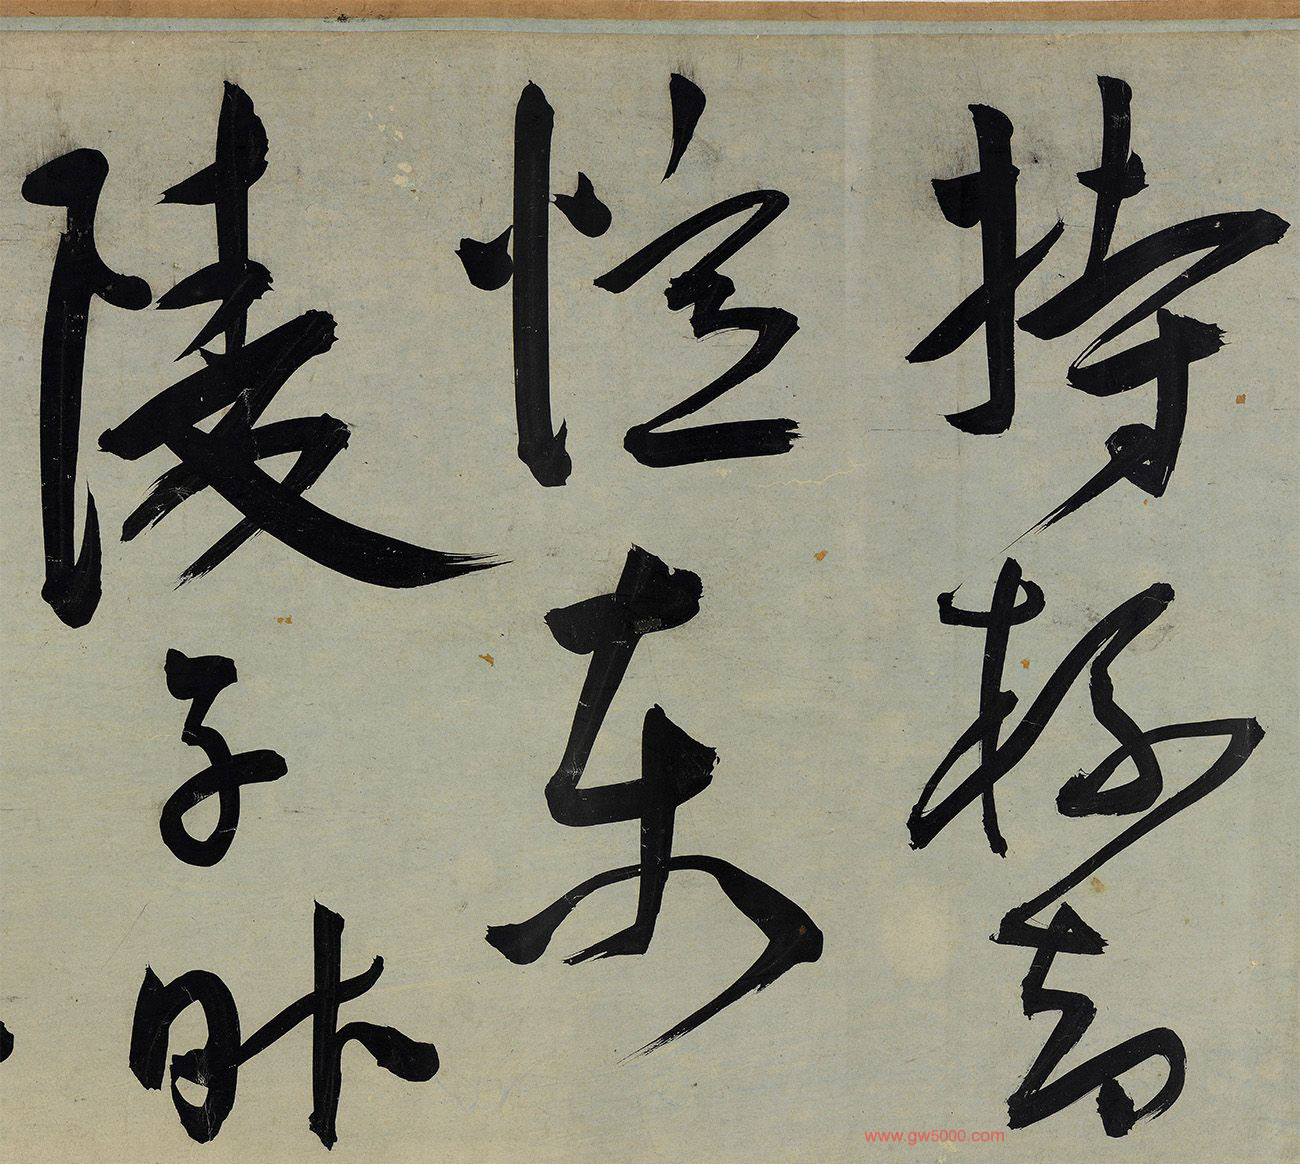 持杯却
憶東
陵子昨
www.gw5000.com